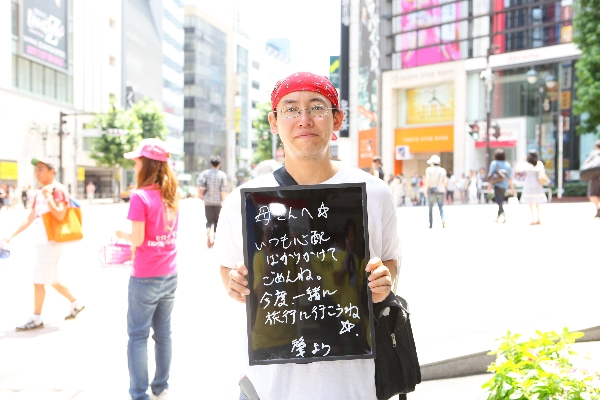 母さんへ☆
いつも心配
ばかりかけて
ごめんね。
今度、一緒に
旅行に行こうね
☆。
より
TOKYU BANK